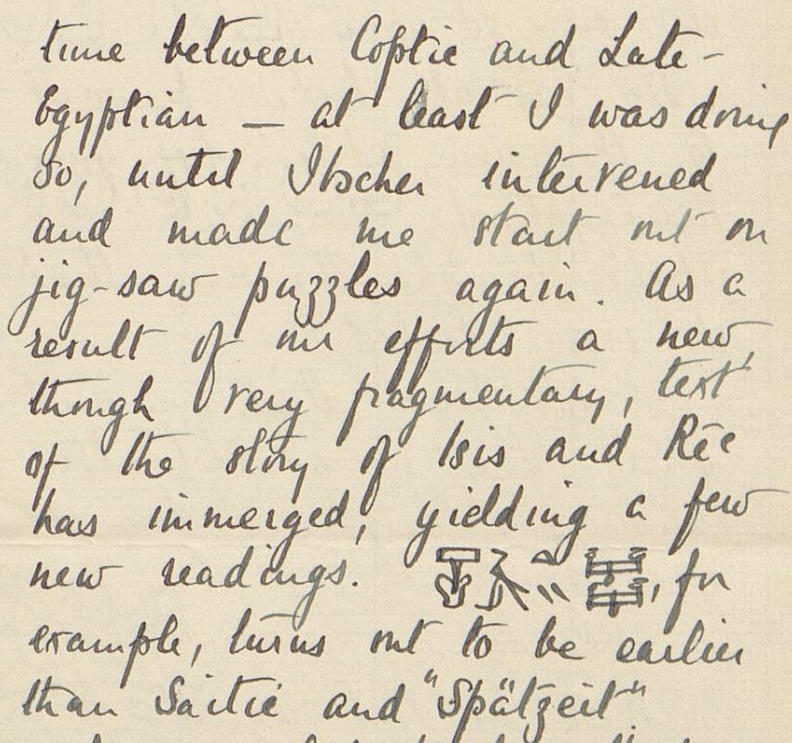 time between Coptic and Late-
Egyptian — at least I was doing
so, until Ibscher intervened
and made me start out on
jig-saw puzzles again. As a
result of our efforts a new,
though very fragmentary, text
of the story of Isis and Rēc
has immerged, yielding a few
new readings. , for
example, turns out to be earlier
than Saitic and "Spätzeit".